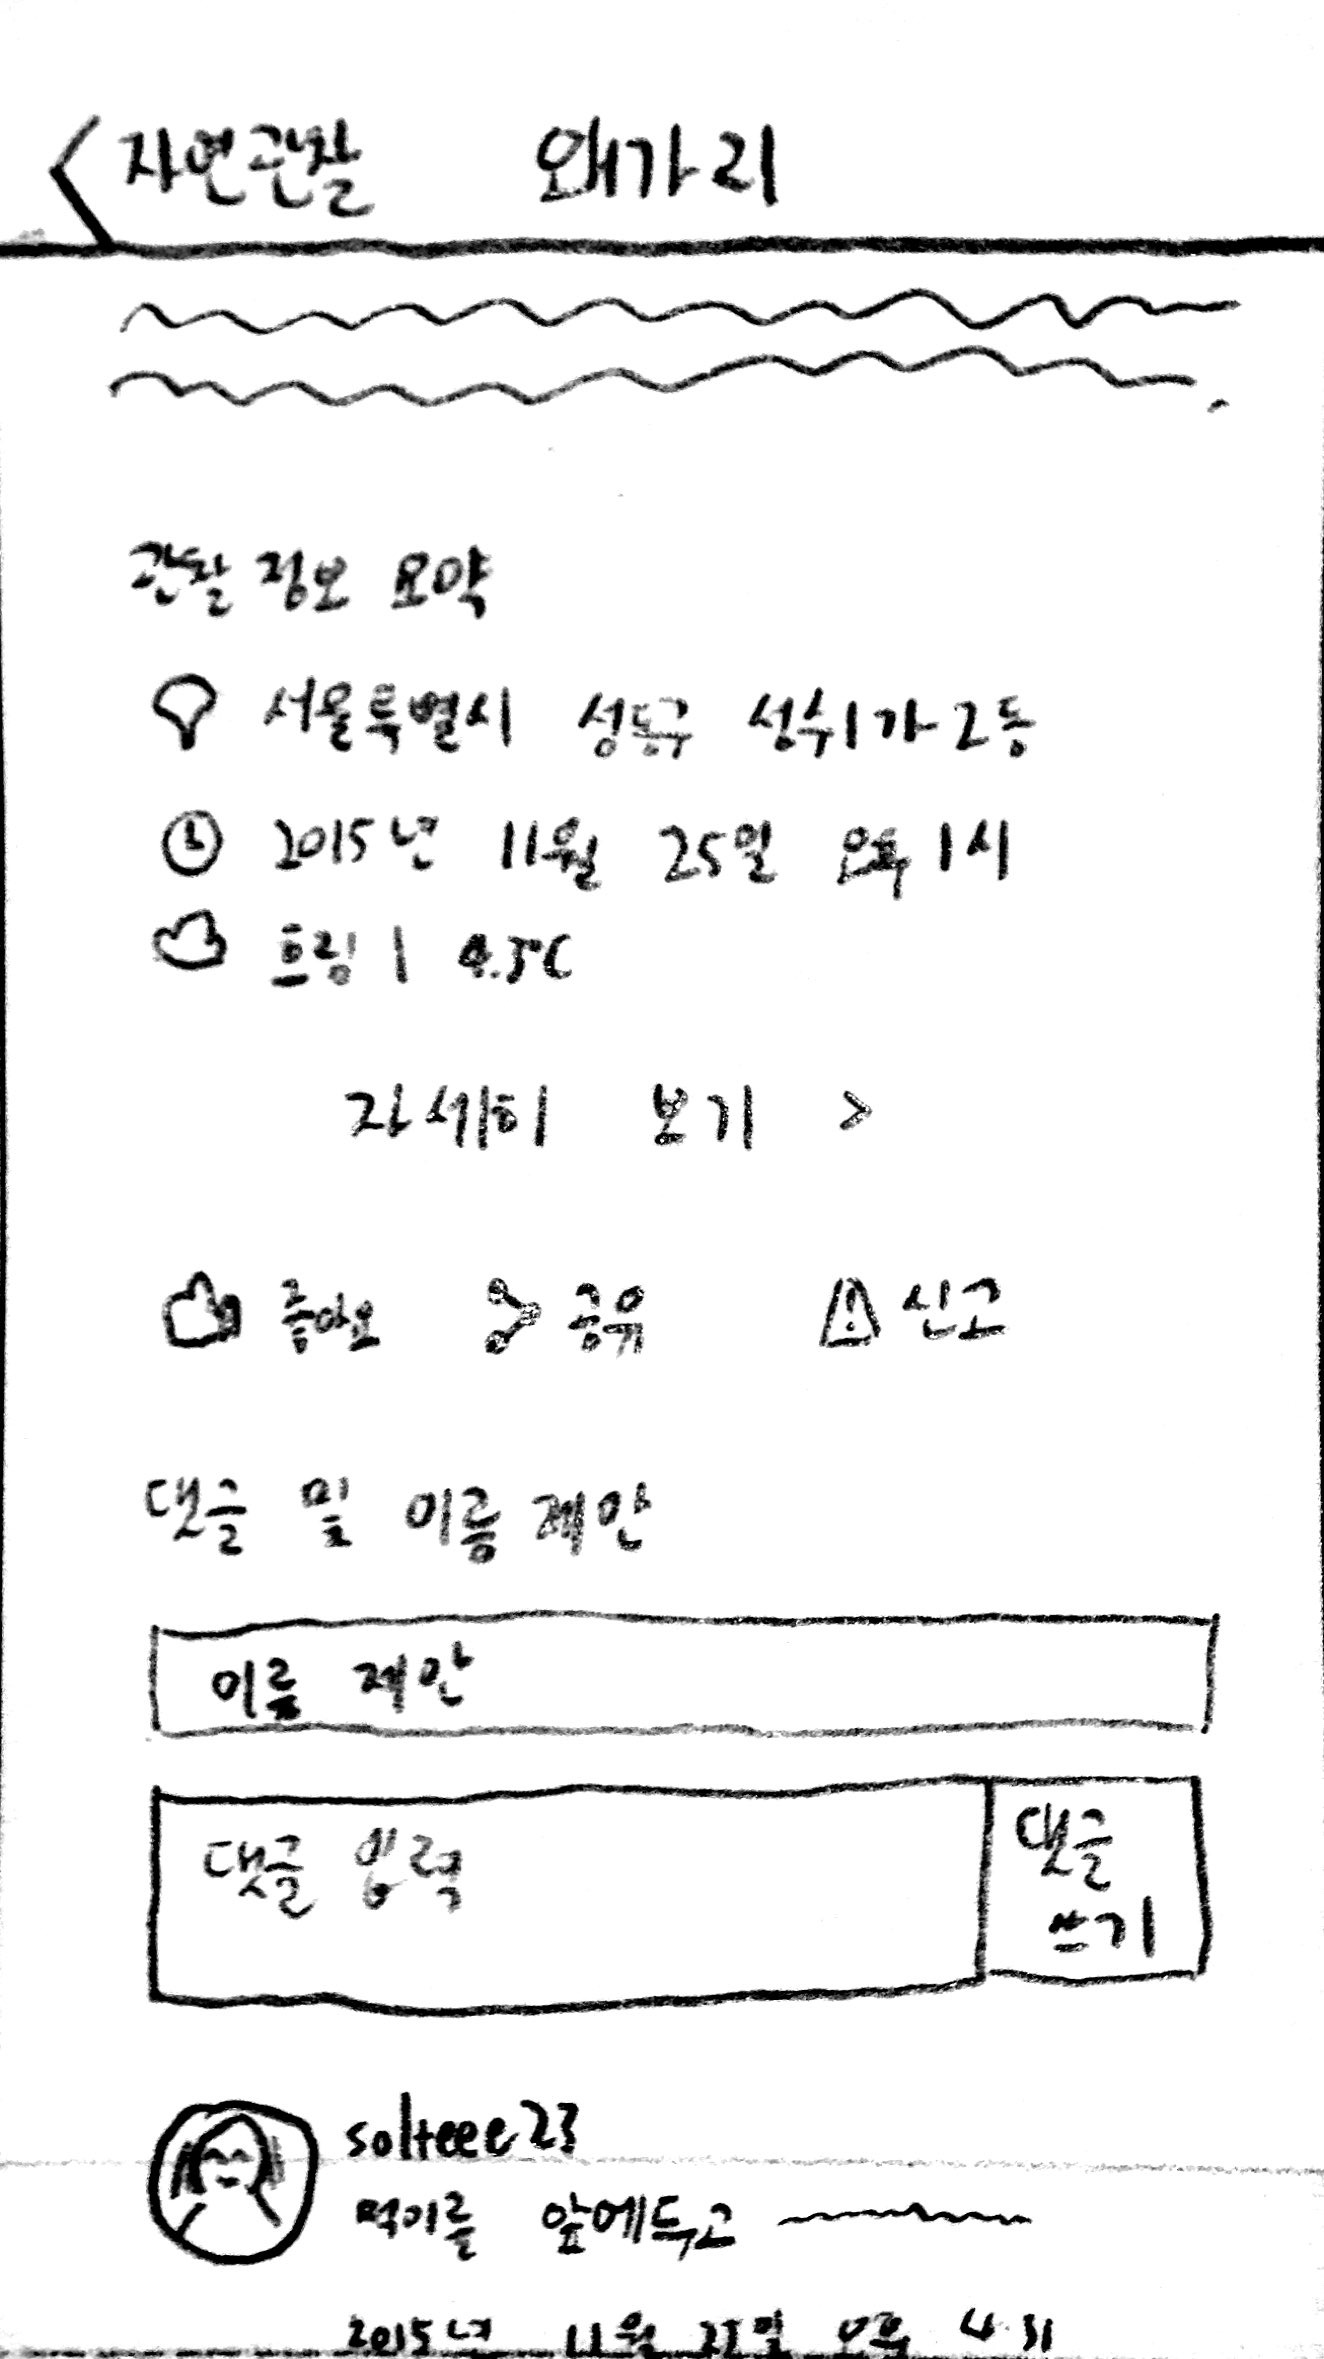 자연관찰 왜가리
관찰 정보 요약
서울특별시 성동구 성수1가2동
2015년 11월 25일 오후 1시
흐림 | 4.5°C
자세히 보기 >
좋아요 공유 신고
댓글 및 이름 제안
이름 제안
댓글 입력
댓글
쓰기
solteee23
먹이를 앞에두고
2015년 11월 25일 오후 4:31